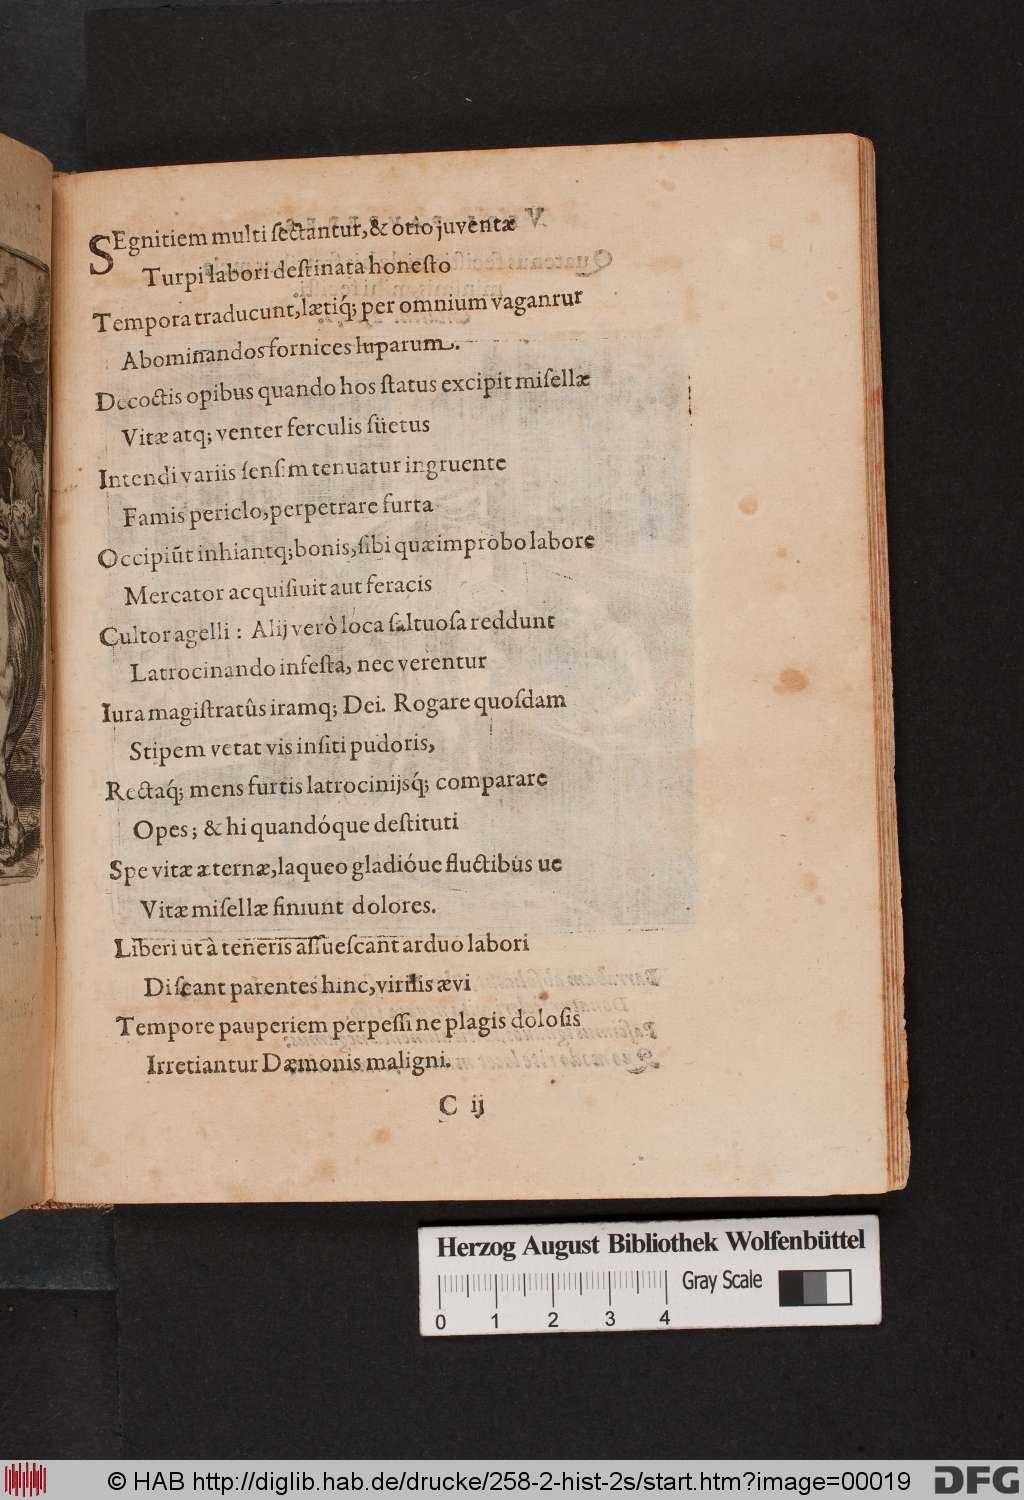 SEgnitiem multi sectantur, & otio juventæ
Turpi labori destinata honesto
Tempora traducunt, lætiq́; per omnium vaganrur
Abominandos fornices luparum.
Decoctis opibus quando hos status excipit misellæ
Vitæ atq; venter ferculis süetus
Intendi variis sensim tenuatur ingruente
Famis periclo, perpetrare furta
Occipiũt inhiantq; bonis, sibi quæ improbo labore
Mercator acquisiuit aut feracis
Cultor agelli: Alij verò loca saltuosa reddunt
Latrocinando infesta, nec verentur
Iura magistratûs iramq; Dei. Rogare quosdam
Stipem vetat vis insiti pudoris,
Rectaq́; mens furtis latrocinijsq́; comparare
Opes; & hi quandóque destituti
Spe vitæ æternæ, laqueo gladióue fluctibus ue
Vitæ misellæ finiunt dolores.
Liberi ut à teneris assuescant arduo labori
Discant parentes hinc, virilis ævi
Tempore pauperiem perpessi ne plagis dolosis
Irretiantur Dæmonis maligni.
C ij
Herzog August Bibliothek Wolfenbüttel
Gray Scale
0 1 2 3 4
© HAB http://diglib.hab.de/drucke/258-2-hist-2s/start.htm?image=00019
DFG